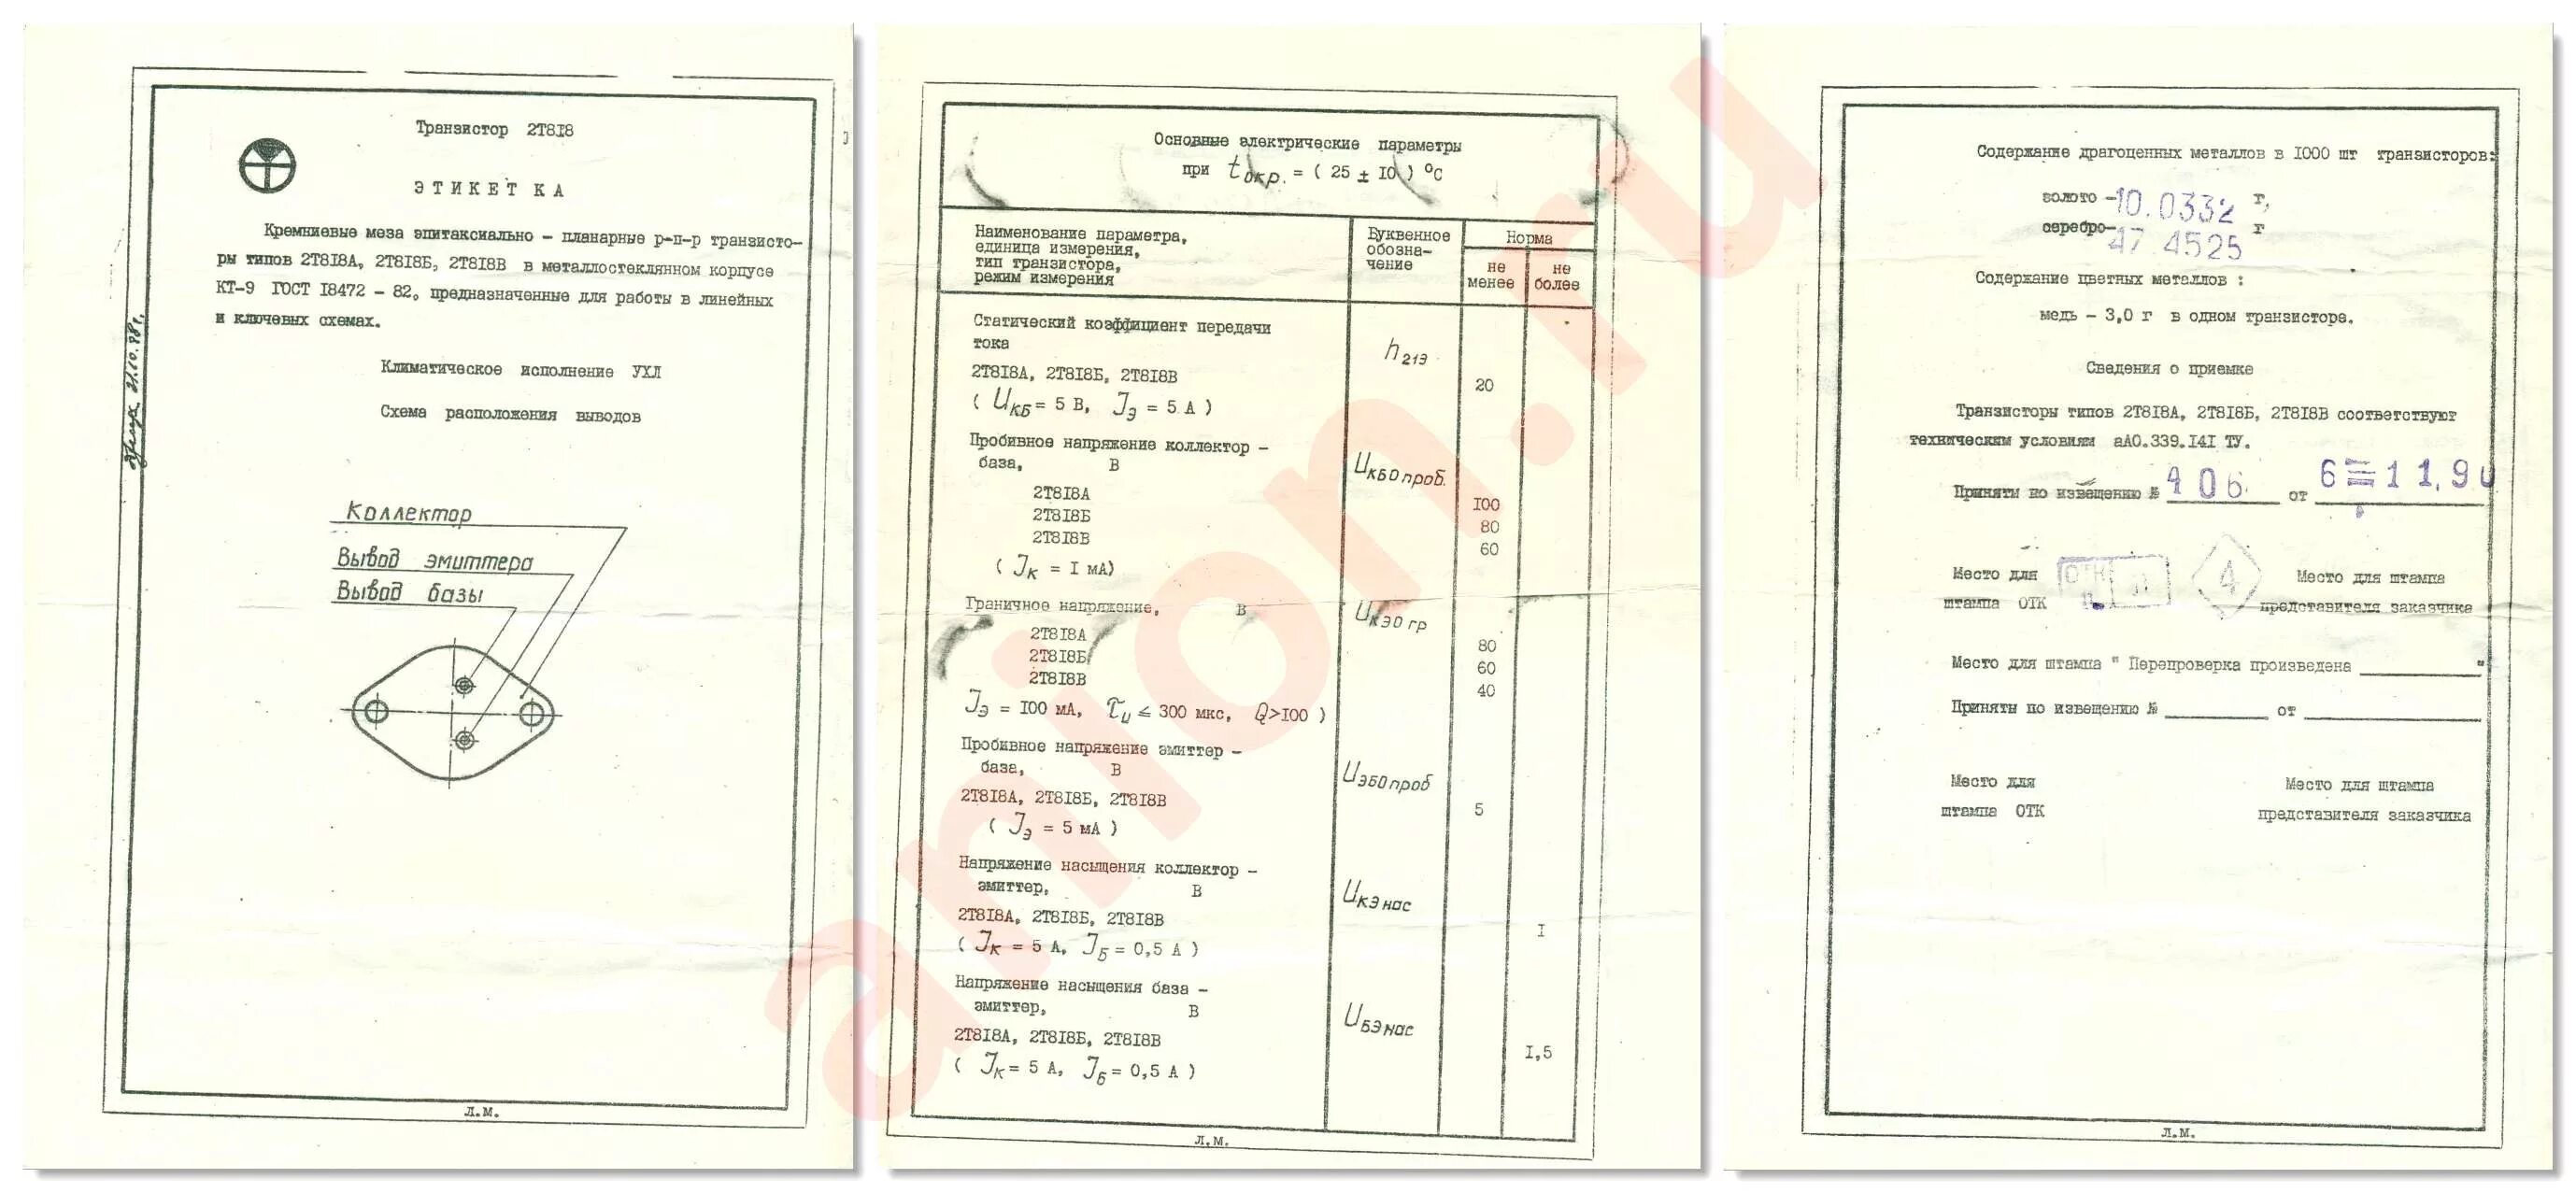 Транзистор 2Т8I8
Э Т И К Е Т К А
Кремниевые меза эпитаксиально - планарные р-п-р транзисто-
ры типов 2Т8I8А, 2Т8I8Б, 2Т8I8В в металлостеклянном корпусе
КТ-9 ГОСТ I8472 - 82, предназначенные для работы в линейных
и ключевых схемах.
Климатическое исполнение УХЛ
Схема расположения выводов
Коллектор
Вывод эмиттера
Вывод базы
21.10.88г.
Л.М.
Основные электрические параметры
при tокр. = ( 25 ± I0 ) °С
Наименование параметра,
единица измерения,
тип транзистора,
режим измерения
Буквенное
обозна-
чение
Норма
не
менее
не
более
Статический коэффициент передачи
тока
h21Э
2Т8I8А, 2Т8I8Б, 2Т8I8В 20
( UКБ = 5 В, IЭ = 5 А )
Пробивное напряжение коллектор -
база, В UКБО проб.
2Т8I8А I00
2Т8I8Б 80
2Т8I8В 60
( IК = I мА)
Граничное напряжение, В UКЭО гр
2Т8I8А 80
2Т8I8Б 60
2Т8I8В 40
IЭ = I00 мА, τи ≤ 300 мкс, Q>I00 )
Пробивное напряжение эмиттер -
база, В UЭБО проб
2Т8I8А, 2Т8I8Б, 2Т8I8В 5
( IЭ = 5 мА )
Напряжение насыщения коллектор -
эмиттер, В UКЭ нас
2Т8I8А, 2Т8I8Б, 2Т8I8В I
( IК = 5 А, IБ = 0,5 А )
Напряжение насыщения база -
эмиттер, В UБЭ нас
2Т8I8А, 2Т8I8Б, 2Т8I8В I,5
( IК = 5 А, IБ = 0,5 А )
Л.М.
Содержание драгоценных металлов в I000 шт транзисторов:
золото - 10.0332 г,
серебро- 47 4525 г
Содержание цветных металлов :
медь - 3,0 г в одном транзисторе.
Сведения о приемке
Транзисторы типов 2Т8I8А, 2Т8I8Б, 2Т8I8В соответствуют
техническим условиям аА0.339.I4I ТУ.
Приняты по извещению № 406 от 6=11.90
Место для
штампа ОТК
ОТК
4
Место для штампа
представителя заказчика
Место для штампа " Перепроверка произведена "
Приняты по извещению № от
Место для
штампа ОТК
Место для штампа
представителя заказчика
Л.М.
anion.ru